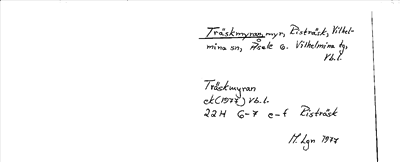 Träskmyran, myr, Risträsk, Vilhel-
mina sn, Åsele o. Vilhelmina tg,
Vb.l.
Träskmyran
ek(1977) Vb.l.
22H 6-7 e-f Risträsk
M. Lgn 1977